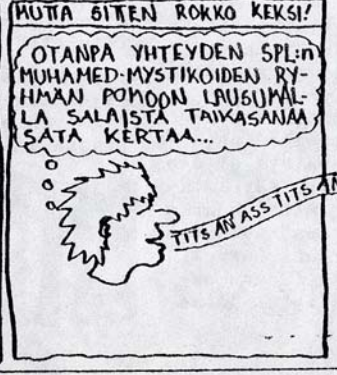 MUTTA SITTEN ROKKO KEKSI!
OTANPA YHTEYDEN SPL:n
MUHAMED-MYSTIKOIDEN RY-
HMÄN POMOON LAUSUMAL-
LA SALAISTA TAIKASANAA
SATA KERTAA...
TITS AN' ASS TITS AN